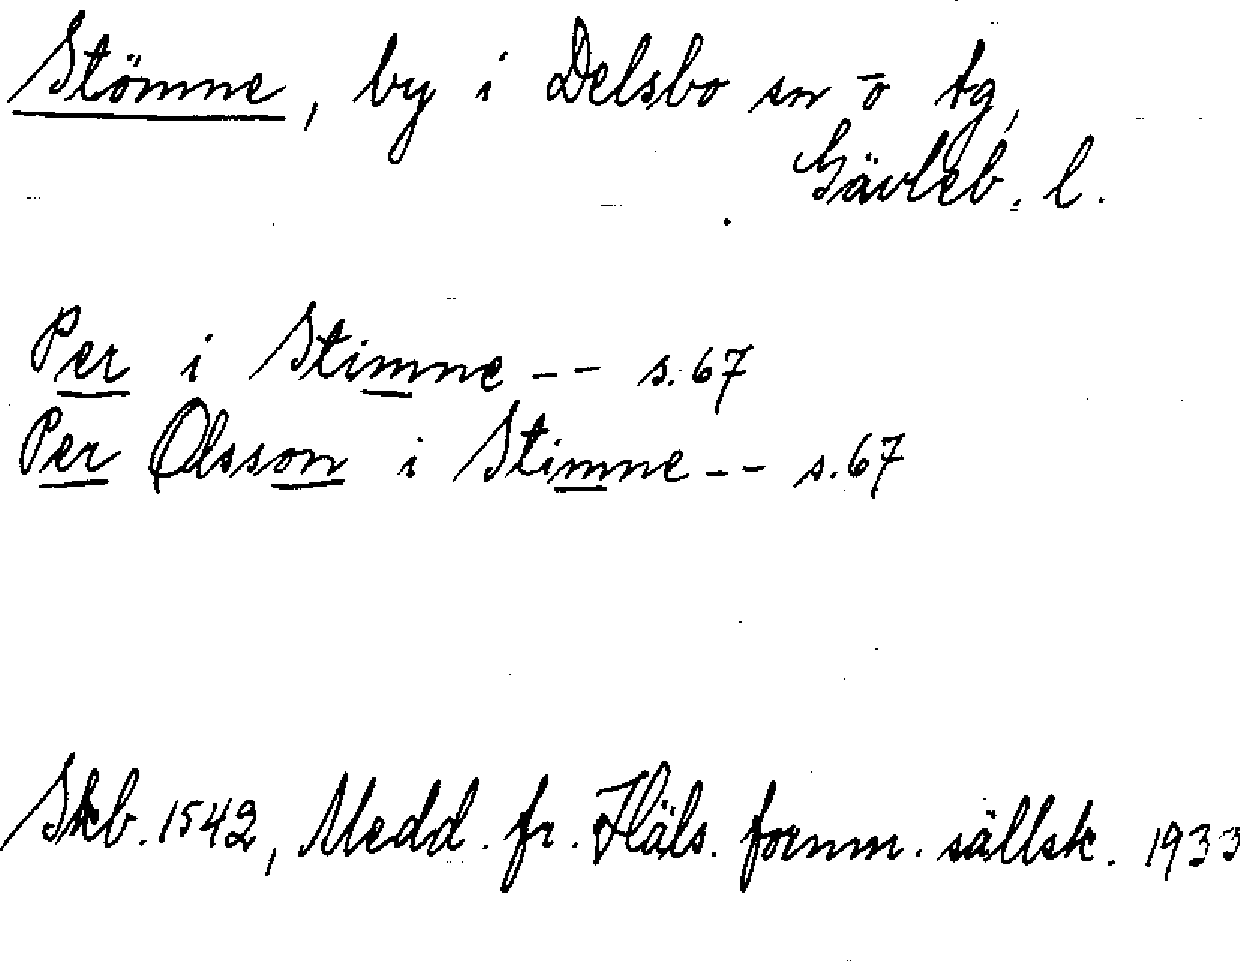 Stömne, by i Delsbo sn o tg,
Gävleb. l.
Per i Stimne -- s. 67
Per Olsson i Stimne -- s. 67
Skb. 1542, Medd. fr. Häls. fornm. sällsk. 1933